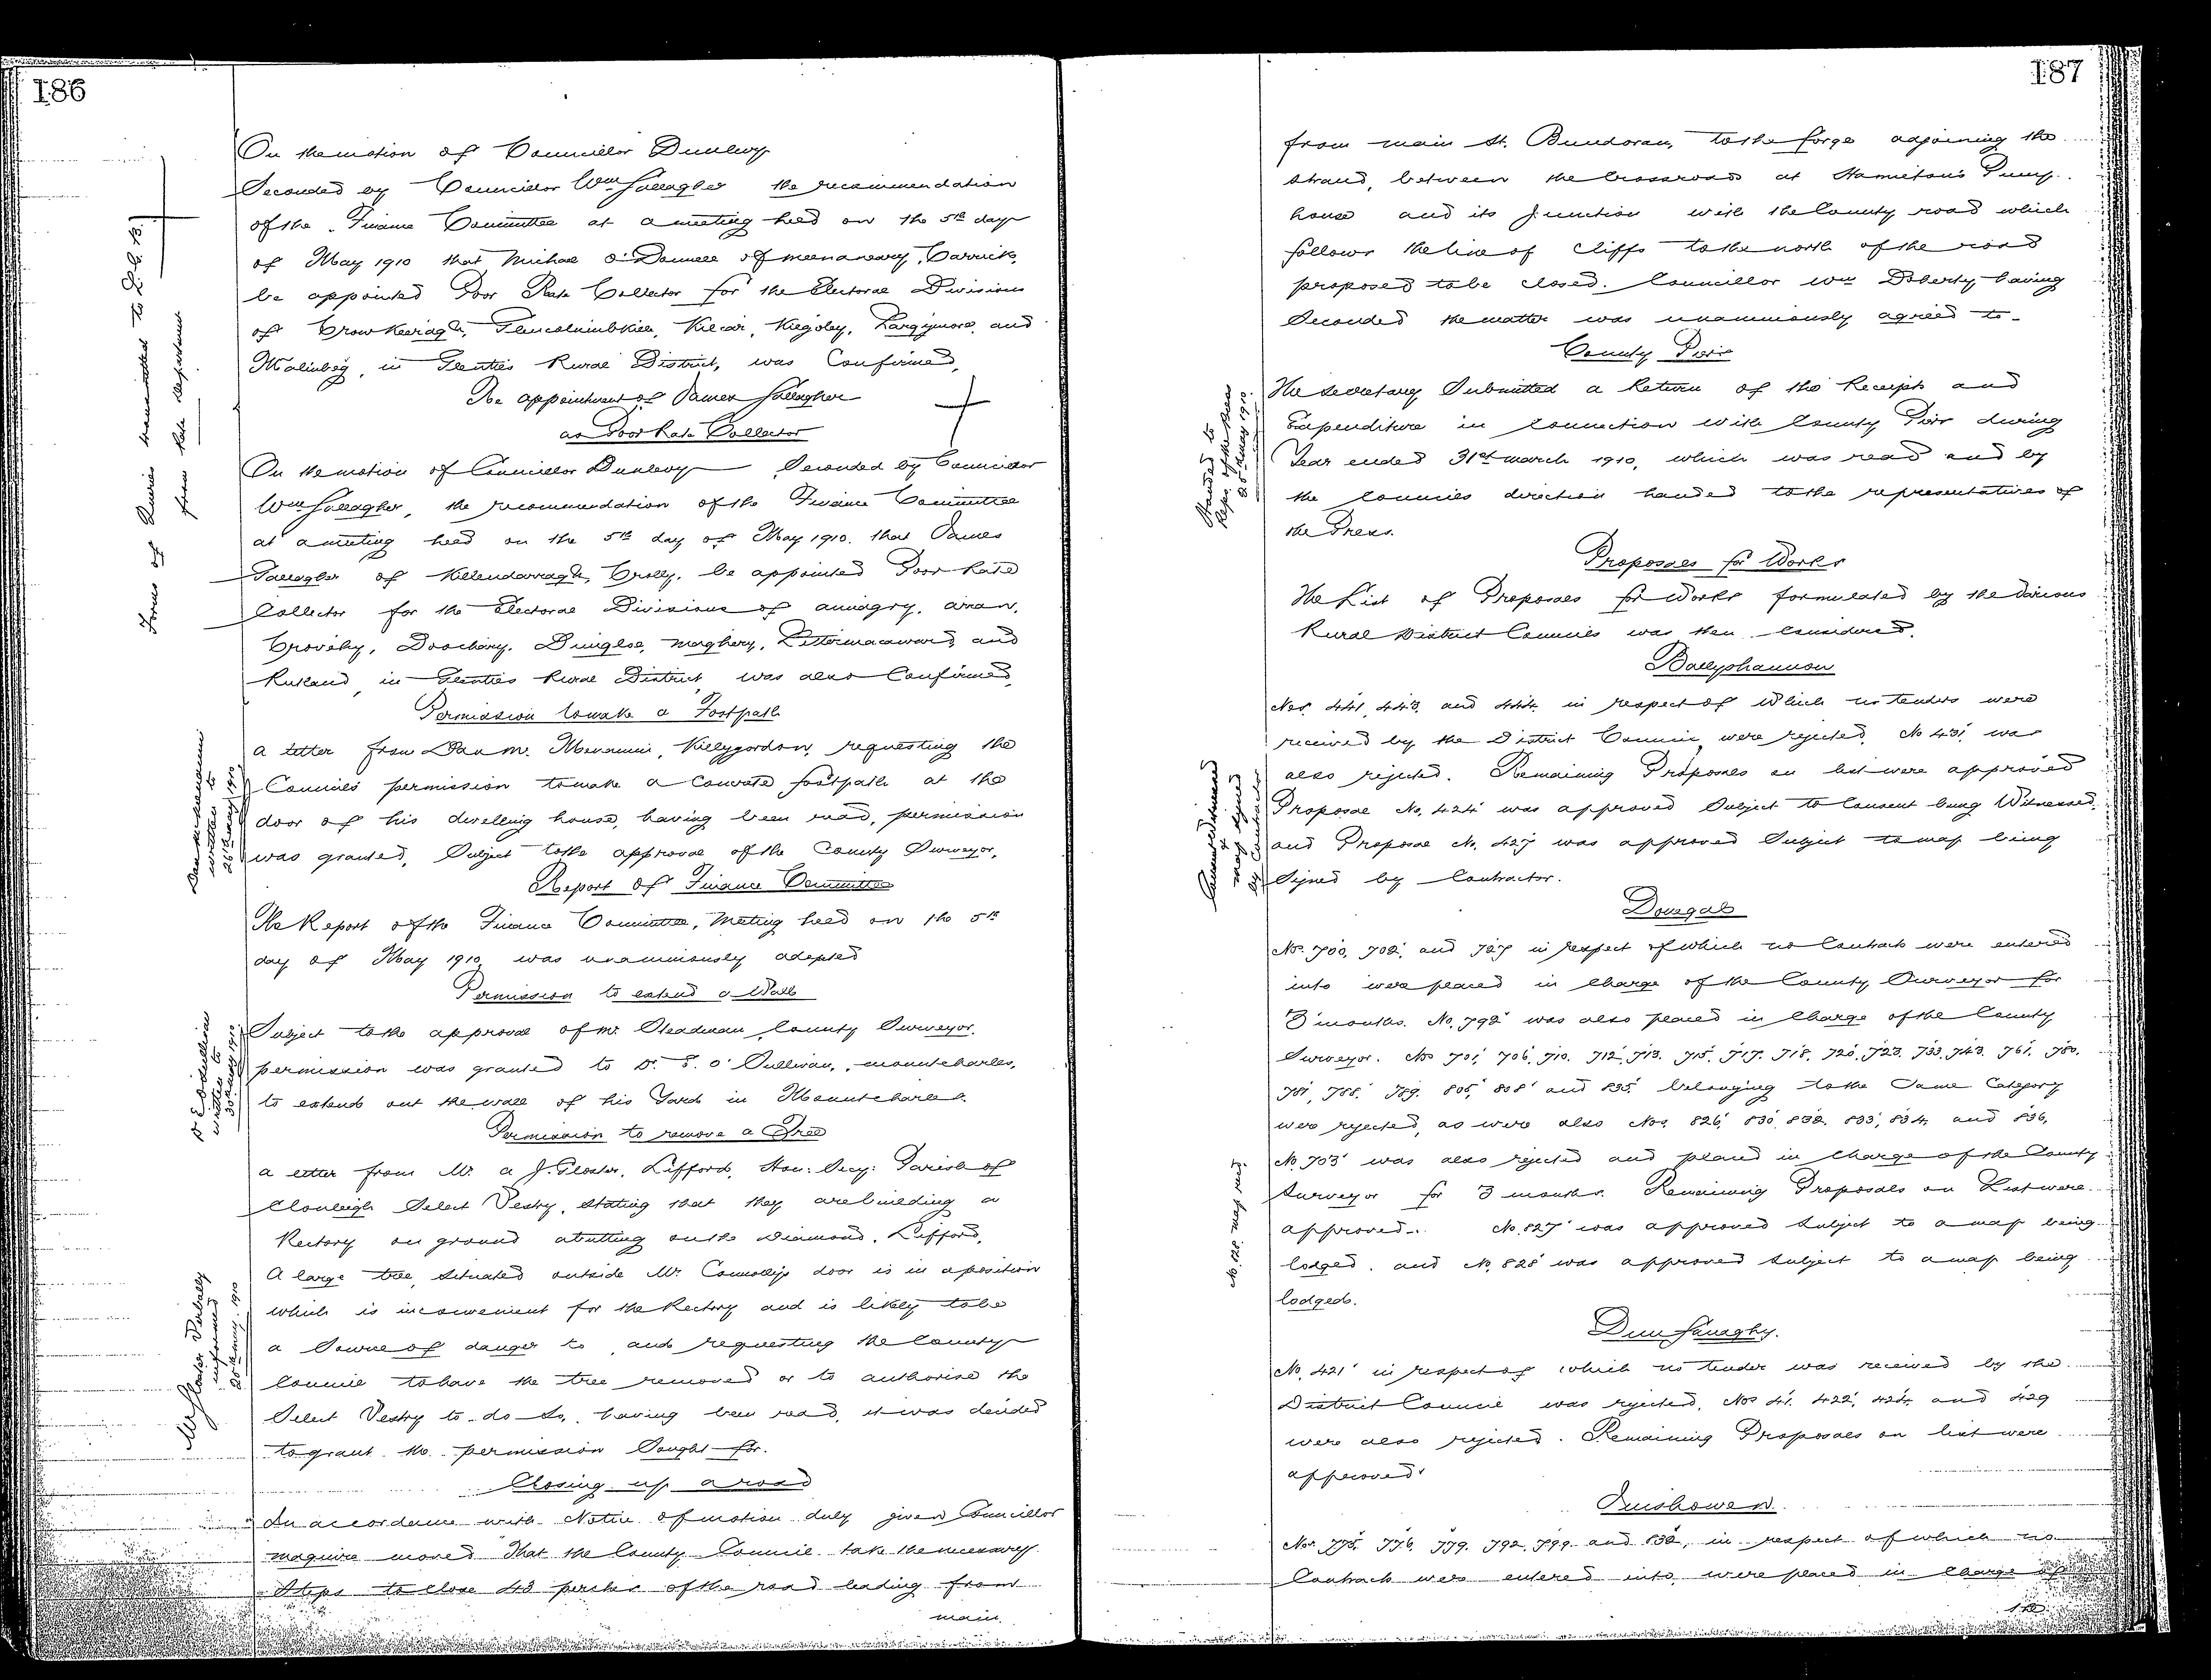 186
On the motion of Councillor Dunlevy
Seconded by Councillor Wm Gallagher the recommendation
of the Finance Committee at a meeting held on the 5th day
of May 1910 that Michael O'Donnell of Meenaneary, Carrick,
be appointed Poor Rate Collector for the Electoral Divisions
of Crowkeeragh, Glencolumbkille, Kilcar, Kilgoly, Largymore, and
Malinbeg, in Glenties Rural District, was Confirmed,
Re appointment of James Gallagher
as Poor Rate Collector
On the motion of Councillor Dunlevy Seconded by Councillor
Wm Gallagher, the recommendation of the Finance Committee
at a meeting held on the 5th day of May 1910. that James
Gallagher of Killendarragh, Crolly, be appointed Poor Rate
Collector for the Electoral Divisions of Annagry, Aran,
Crovehy, Doochary, Dungloe, Maghery, Lettermacaward, and
Rutland, in Glenties Rural District, was also Confirmed,
Forms of Queries transmitted to L.G.B.
from Rate department
Permission to make a Footpath
a letter from Dan Mc Menamin, Killygordon, requesting the
Council's permission to make a Concrete footpath at the
door of his dwelling house, having been read, permission
was granted, Subject to the approval of the County Surveyor.
Dan McMenamin
written to
26th May 1910
Report of Finance Committee
The Report of the Finance Committee, Meeting held on the 5th
day of May 1910, was unanimously adopted
Permission to extend a Wall
Subject to the approval of Mr Steadman, County Surveyor,
permission was granted to D. E. O'Sullivan, Mountcharles,
to extend out the wall of his Yard in Mountcharles.
D E O'Sullivan
written to
30 May 1910
Permission to remove a Tree
a letter from Mr. A J. Gloster, Lifford, Hon: Secy: Parish of
Clonleigh Select Vestry, stating that they are building a
Rectory on ground abutting on the Diamond, Lifford,
A large tree, situated outside Mr. Connolly's door is in a position
which is inconvenient for the Rectory and is likely to be
a Source of danger to, and requesting the County
Council to have the tree removed or to authorise the
Select Vestry to do so, having been read, it was decided
to grant the permission Sought for.
Mr Gloster Verbally
informed
25th May 1910
Closing up a road
In accordance with Notice of motion duly given Councillor
Maguire moved That the County Council take the necessary
Steps to close 43 perches of the road leading from
main
187
from main St. Bundoran, to the forge adjoining the
strand, between the Crossroads at Hamilton's Pump
house and its Junction with the County road which
follows the line of cliffs to the north of the road
proposed to be closed. Councillor Wm Doherty having
Seconded the matter was unanimously agreed to.
County Piers
The Secretary Submitted a Return of the Receipts and
Expenditure in Connection with County Piers during
Year ended 31st March 1910, which was read and by
the Councils direction handed to the representatives of
the Press.
Handed to
Reps. of the Press
25th May 1910.
Proposals for Works
The List of Proposals for Works formulated by the various
Rural District Councils was then considered.
Ballyshannon
Nos. 441, 443, and 444, in respect of Which no tenders were
received by the District Council were rejected, No 431, was
also rejected. Remaining Proposals on list were approved
Proposal No, 424 was approved Subject to Consent being Witnessed,
and Proposal No. 427 was approved Subject to map being
Signed by Contractor.
Consent Witnessed
& map signed
by Contractor
Donegal
Nos. 700, 702, and 727 in respect of which no Contracts were entered
into were placed in Charge of the County Surveyor for
3 months. No. 792 was also placed in Charge of the County
Surveyor. Nos 701, 706, 710, 712, 713, 715, 717, 718, 720, 723, 733, 743, 761, 780,
781, 788, 789, 805, 808 and 835 belonging to the Same Category
were rejected, as were also Nos. 826, 830, 832, 833, 834, and 836,
No. 703 was also rejected and placed in Charge of the County
Surveyor for 3 months. Remaining Proposals on List were
approved. No. 827 was approved Subject to a map being
lodged, and No. 828 was approved Subject to a map being
lodged.
No. 828. map recd.
Dunfanaghy.
No. 421 in respect of which no tender was received by the
District Council was rejected, Nos 41, 422, 424, and 429
were also rejected. Remaining Proposals on list were
approved.
Inishowen
Nos. 775, 776, 779, 792, 799 and 832, in respect of which no
Contracts were entered into, were placed in Charge of
the